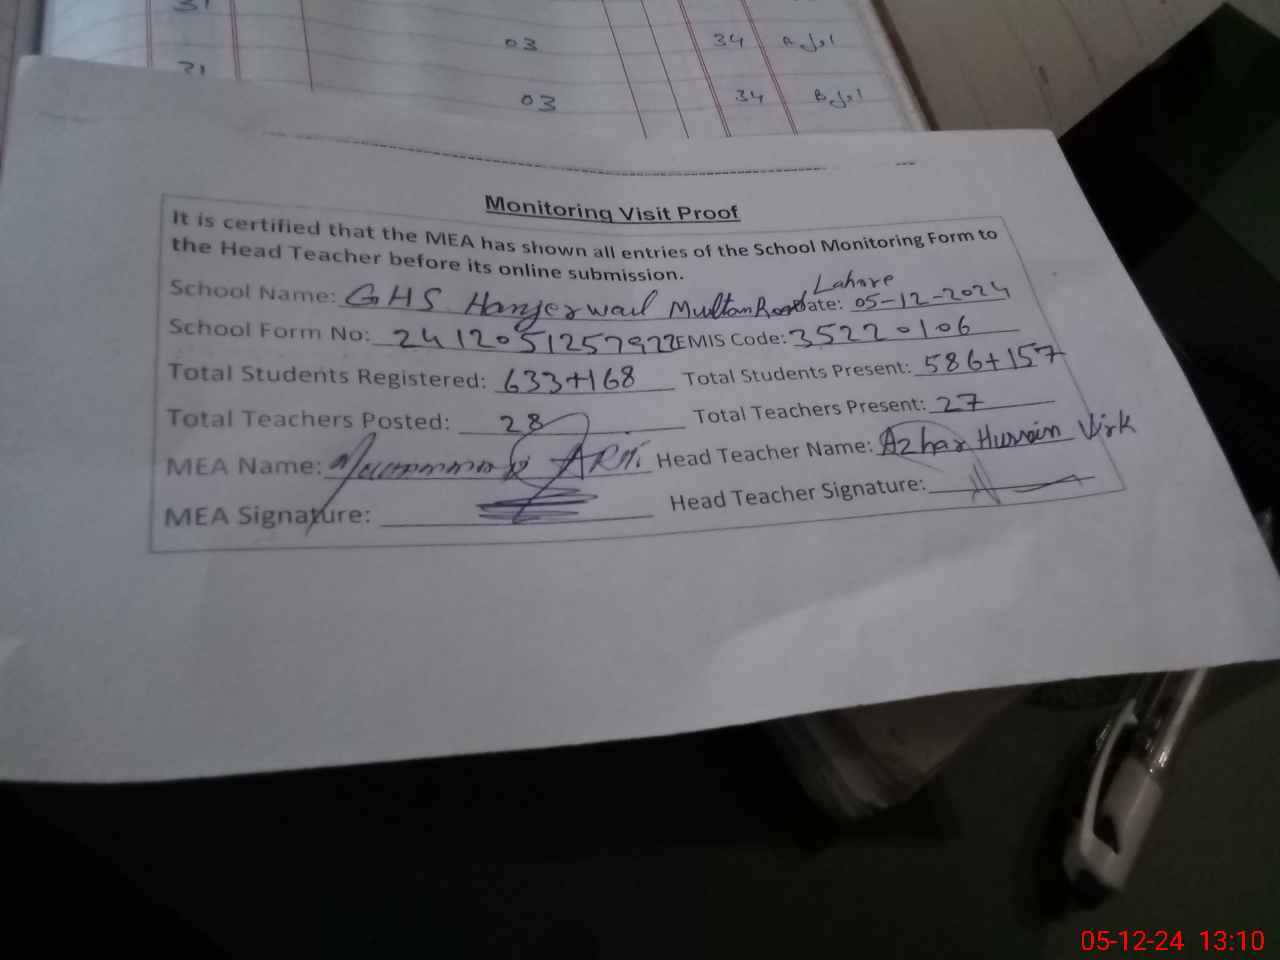 31
03 34
31
03 34
Monitoring Visit Proof
It is certified that the MEA has shown all entries of the School Monitoring Form to
the Head Teacher before its online submission.
School Name: GHS Hanjerwal Multan Road Lahore Date: 05-12-2024
School Form No: 2412051257922 EMIS Code: 35220106
Total Students Registered: 633+168 Total Students Present: 586+157
Total Teachers Posted: 28 Total Teachers Present: 27
MEA Name: Head Teacher Name: Azhar Hussain Virk
MEA Signature: Head Teacher Signature:
05-12-24 13:10